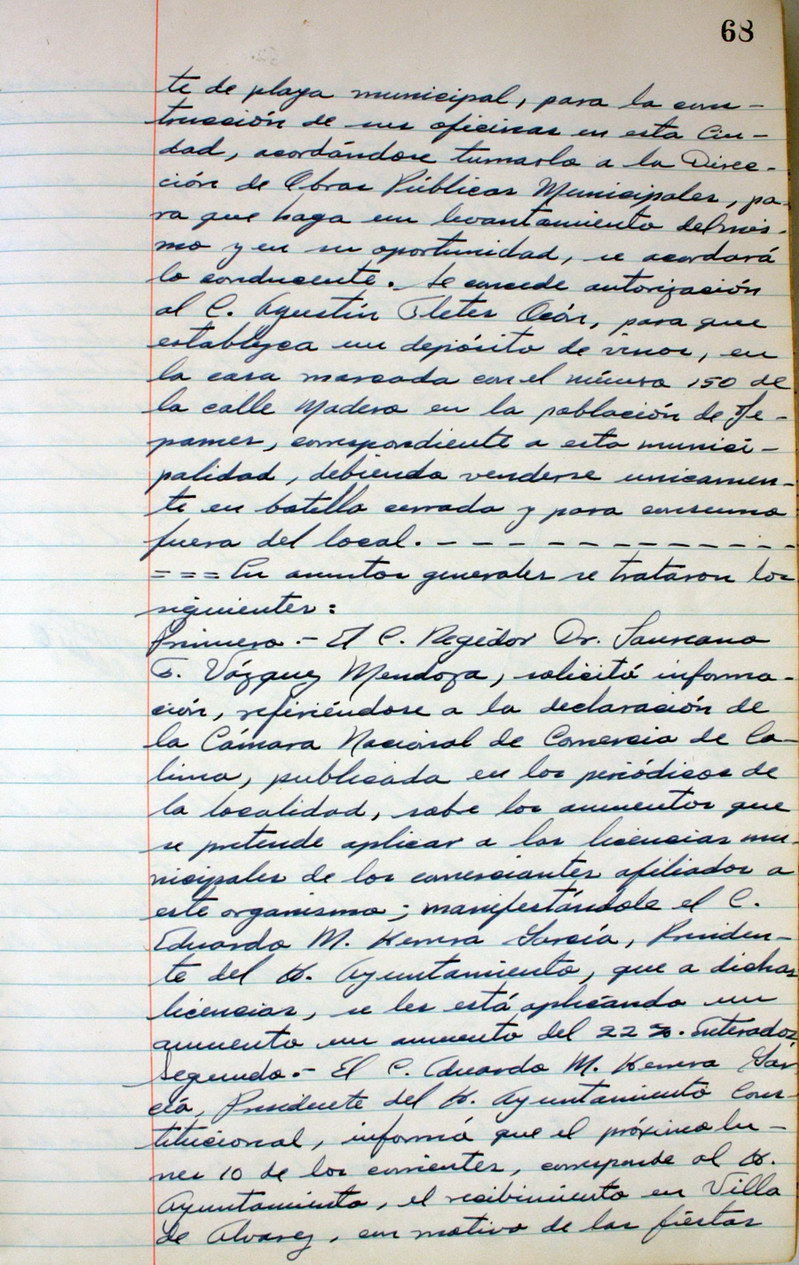 68
te de playa municipal, para la cons-
trucción de sus oficinas en esta Ciu-
dad, acordándose turnarlo a la Direc-
ción de Obras Públicas Municipales, pa-
ra que haga un levantamiento del mis-
mo y en su oportunidad, se acordará
lo conducente. Se concede autorización
al C. Agustín Fletes Ocón, para que
establezca un depósito de vinos, en
la casa marcada con el número 150 de
la calle Madero en la población de Te-
pames, correspondiente a esta munici-
palidad, debiendo venderse unicamen-
te en botella cerrada y para consumo
fuera del local. - - - - - - - - - - - - -
=== En asuntos generales se trataron los
siguientes:
Primero.- El C. Regidor Dr. Laureano
F. Vázquez Mendoza, solicitó informa-
ción, refiriéndose a la declaración de
la Cámara Nacional de Comercio de Co-
lima, publicada en los periódicos de
la localidad, sobre los aumentos que
se pretende aplicar a las licencias mu-
nicipales de los comerciantes afiliados a
este organismo; manifestándole el C.
Eduardo M. Herrera García, Presiden-
te del H. Ayuntamiento, que a dichas
licencias, se les está aplicando un
aumento un aumento del 22%. Enterados
Segundo.- El C. Aduardo M. Herrera Gar
cía, Presidente del H. Ayuntamiento Cons-
titucional, informó que el próximo lu-
nes 10 de los corrientes, corresponde al H.
Ayuntamiento, el recibimiento en Villa
de Alvarez, con motivo de las fiestas